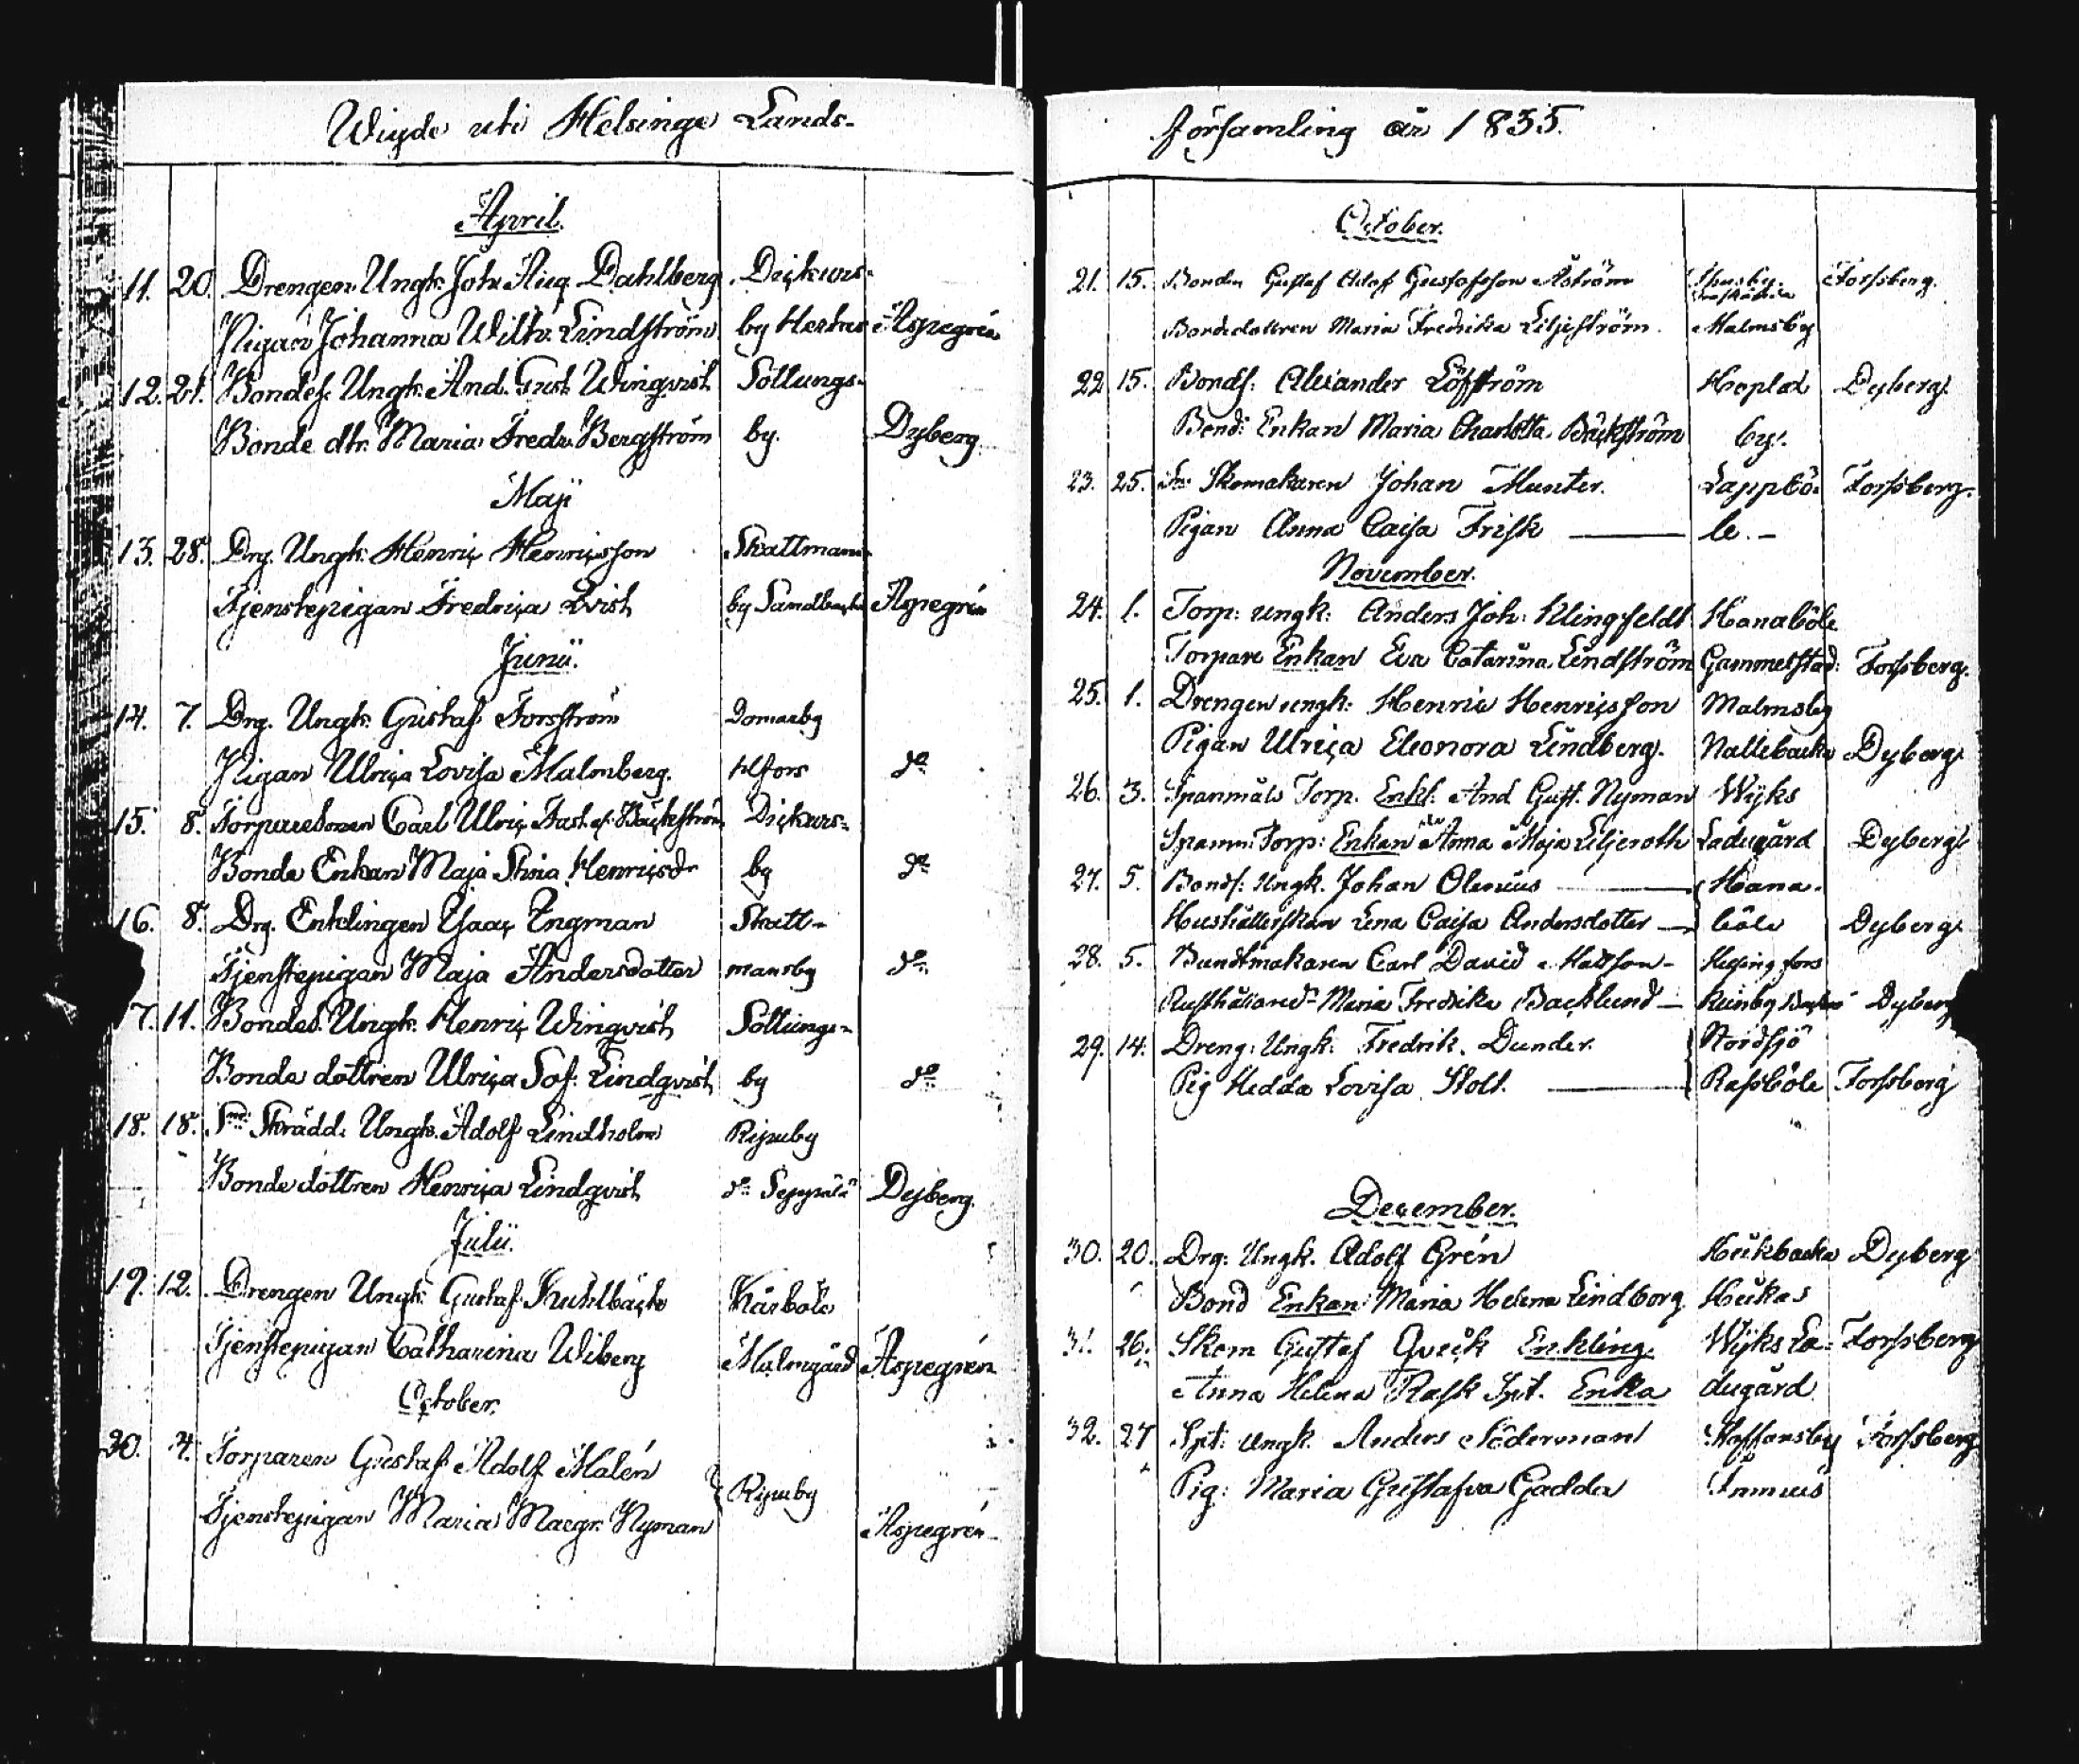 Wigde uti Helsinge Lands-
April.
11. 20. Drengen Ungk. Joh. Aug. Dahlberg Dickurs-
Pigan Johanna Wilh. Lindström by Aspegrén
12. 21. Bondes. Ungk. And. Gust. Winqvist Sottungs-
Bonde dtr. Maria Fredr. Bergström by. Dyberg.
Maji
13. 28. Drg. Ungk. Henric Henricsson Skattmans-
Tjenstepigan Fredrica Qvist by Sandbacka Aspegrén
Junii.
14. 7. Drg. Ungk. Gustaf Forsström Domarby
Pigan Ulrica Lovisa Malmberg. Hfors do
15. 8. Torparesonen Carl Ulric Bäckström Dickurs-
Bonde Enkan Maja Stina Henricsdr by do
16. 8. Drg. Enklingen Isaac Engman Skatt-
Tjenstepigan Maja Andersdotter mansby do
17. 11. Bondes. Ungk. Henric Winqvist Sottungs-
Bonde dottren Ulrica Sof. Lindqvist by do
18. 18. Skrädd. Ungk. Adolf Lindholm Ripuby
Bonde dottren Henrica Lindqvist do Seppälä Dyberg.
Julii.
19. 12. Drengen Ungk. Gustaf Kuhlbäck Kårböle
Tjenstepigan Catharina Wiberg Malmgård Aspegrén
October.
20. 4. Torparen Gustaf Adolf Malén
Ripuby
Tjenstepigan Maria Margr. Nyman Aspegrén
församling år 1835.
October.
21. 15. Bonden Gustaf Adolf Gustafsson Åström Forssberg.
Bondedottren Maria Fredrika Liljeström. Malmsby
22. 15. Bonds: Alexander Löfström Hoplax Dyberg.
Bond: Enkan Maria Charlotta Bäckström by.
23. 25. Skomakaren Johan Munter. Lappbö- Forssberg.
Pigan Anna Caisa Frisk le.-
November.
24. 1. Torp: ungk: Anders Joh: Klingfeldt Hanaböle
Torpare Enkan Eva Catarina Lindström Gammelstad: Forssberg.
25. 1. Drengen ungk: Henric Henricsson Malmsby
Pigan Ulrica Eleonora Lindberg. Nallebacka Dyberg.
26. 3. Spanmåls Torp. Enkl. And. Gust. Nyman Wijks
Spanm: Torp: Enkan Anna Maja Liljeroth Ladugård Dyberg.
27. 5. Bonds: Ungk. Johan Olenius Hana-
Hushållerskan Lena Caisa Andersdotter böle Dyberg.
28. 5. Buntmakaren Carl David Mattson- Helsingfors
Rusthållared- Maria Fredrika Backlund Dyberg
29. 14. Dreng: Ungk: Fredrik. Dunder. Nordsjö
Pig Hedda Lovisa Stolt. Rasböle Forssberg
December.
30. 20. Drg: Ungk. Adolf Grén Stickbacka Dyberg
Bond Enkan Maria Helena Lindborg
31. 26. Skom Gustaf Qvick Enkling. Wijks La- Forssberg
Anna Helena Rask Spt. Enka dugård
32. 27 Spt: Ungk. Anders Söderman Staffansby Forssberg
Pig: Maria Gustafva Gadda